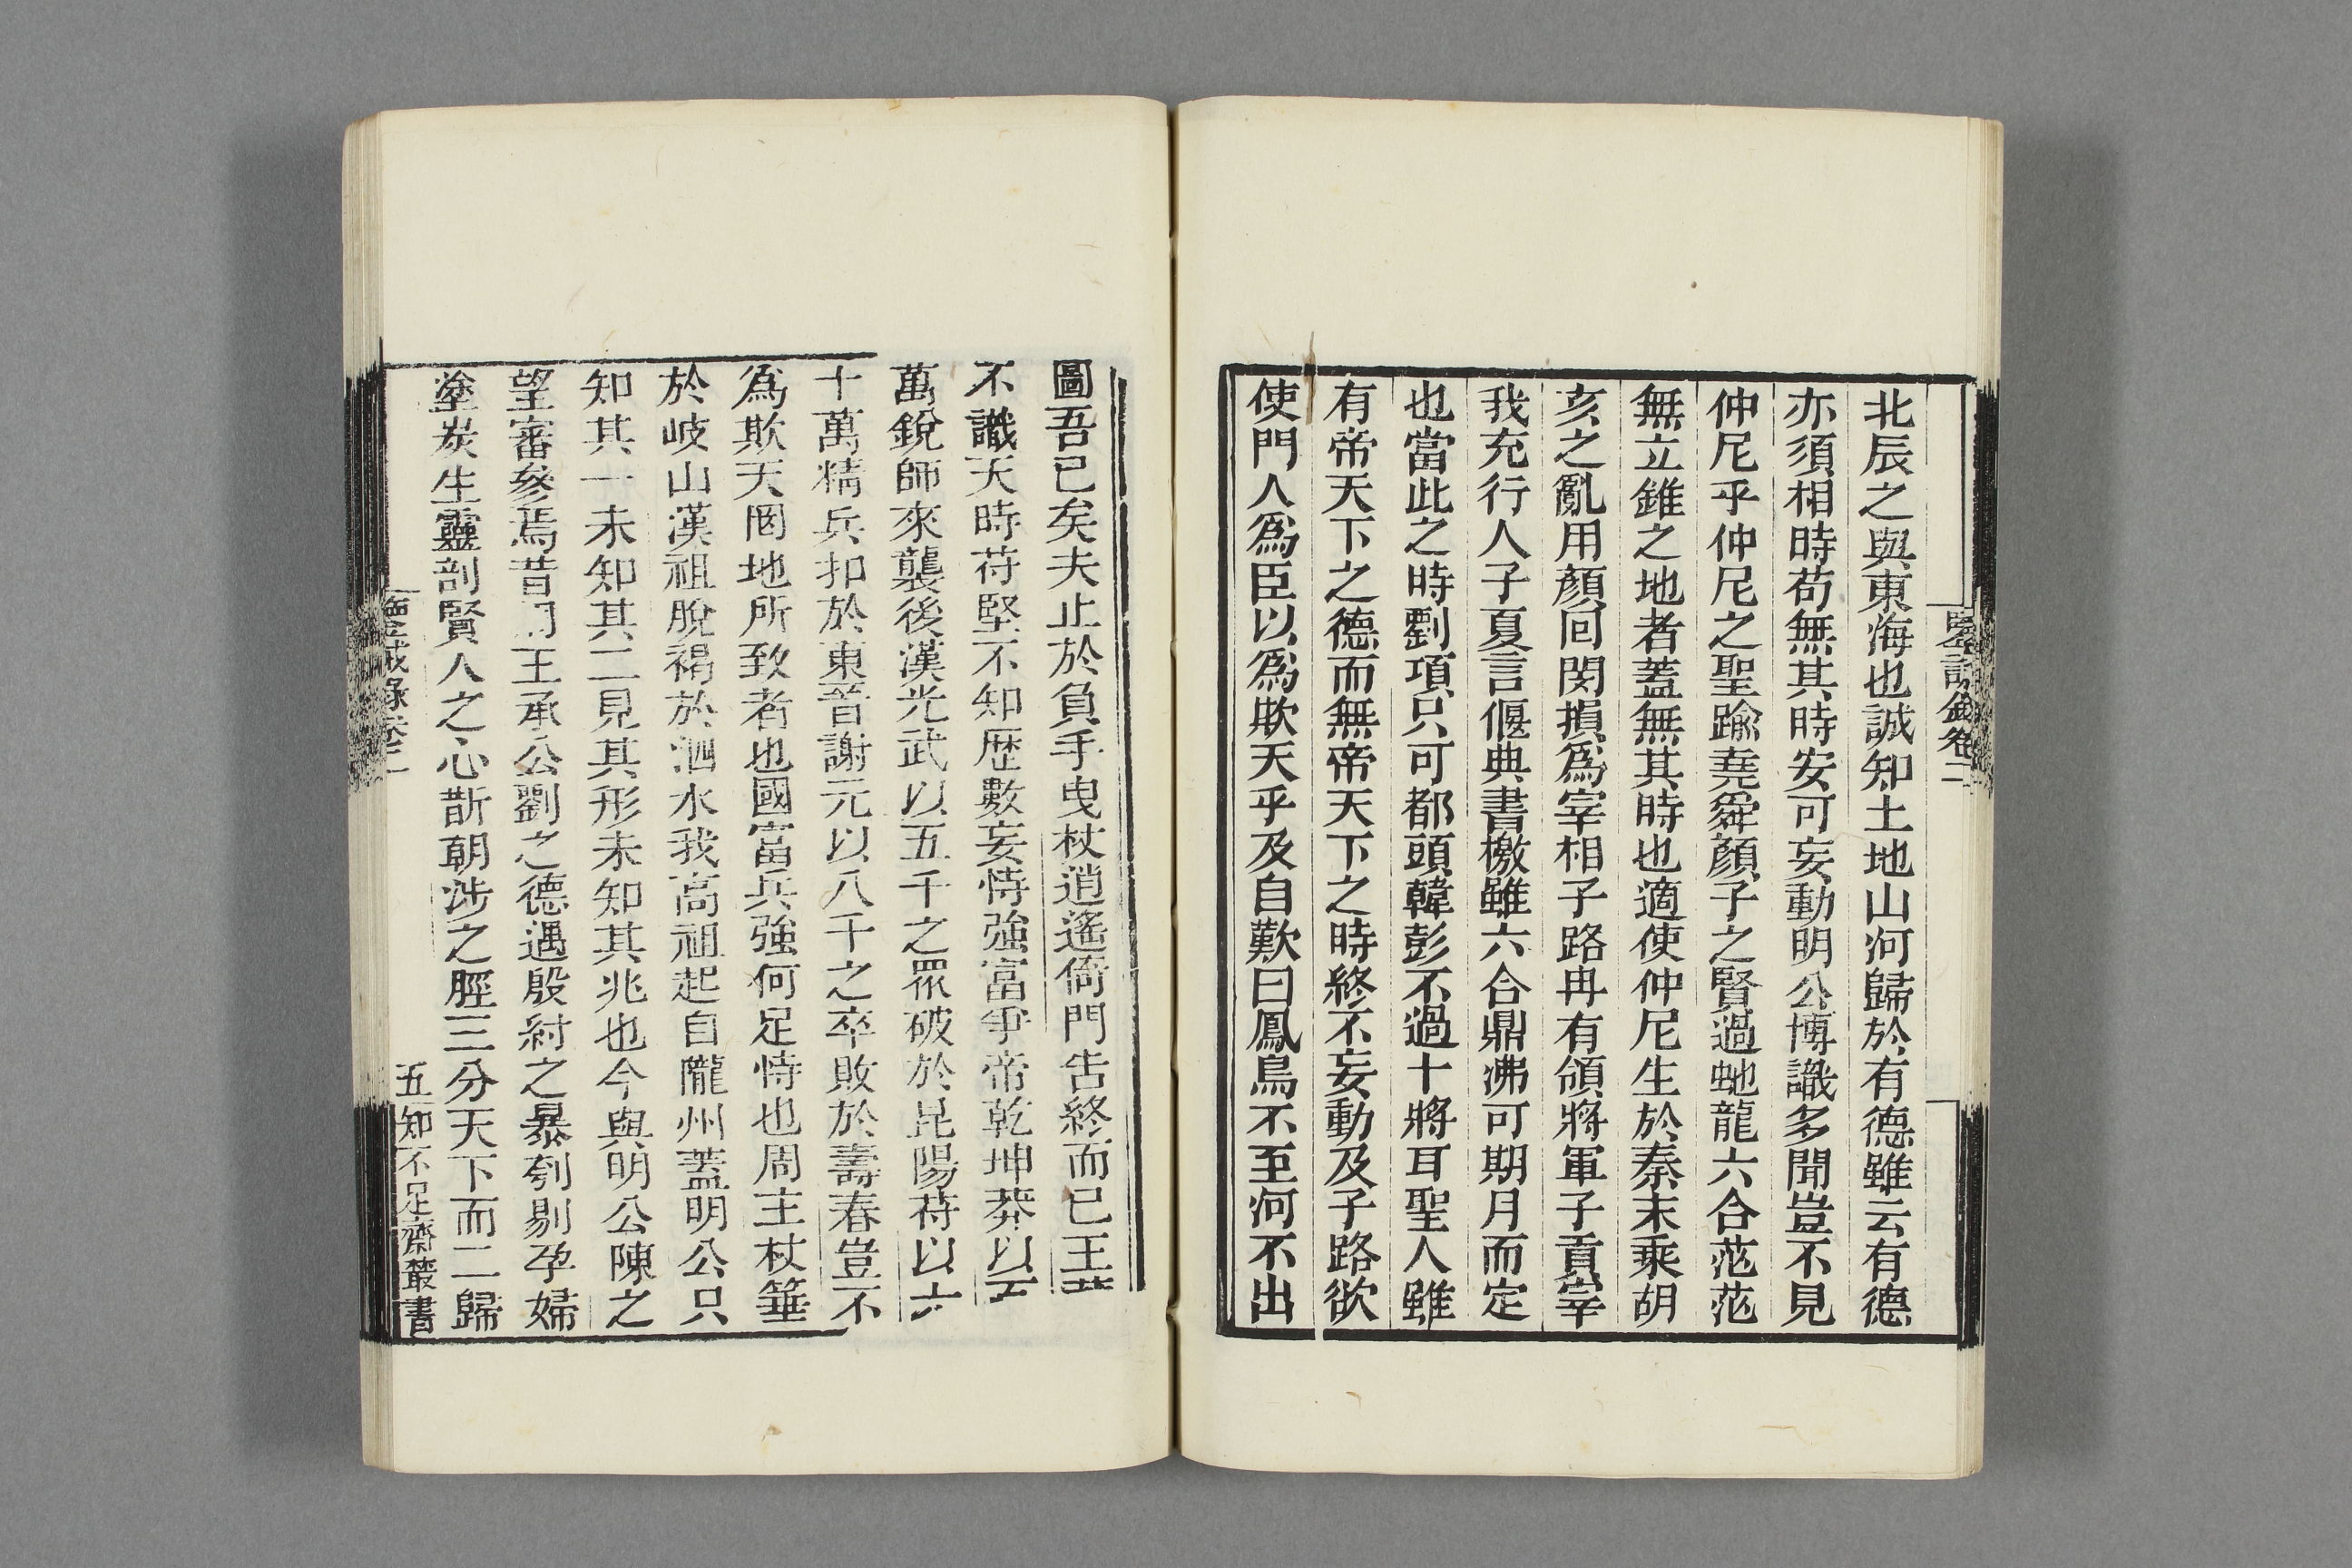 鑒誡錄卷二
北辰之與東海也誠知土地山河歸於有德雖云有德
亦須相時苟無其時安可妄動明公博識多聞豈不見
仲尼乎仲尼之聖踰堯舜顏子之賢過虵龍六合茫茫
無立錐之地者蓋無其時也適使仲尼生於秦末乘胡
亥之亂用顏回閔損爲宰相子路冉有領將軍子貢宰
我充行人子夏言偃典書檄雖六合鼎沸可期月而定
也當此之時劉項只可都頭韓彭不過十將耳聖人雖
有帝天下之德而無帝天下之時終不妄動及子路欲
使門人爲臣以爲欺天乎及自歎曰鳳鳥不至河不出
圖吾已矣夫止於負手曳杖逍遙倚門告終而已王莽
不識天時苻堅不知歷數妄恃強富爭帝乾坤莽以百
萬銳師來襲後漢光武以五千之眾破於昆陽苻以六
十萬精兵扣於東晉謝元以八千之卒敗於壽春豈不
爲欺天罔地所致者也國富兵強何足恃也周主杖箠
於岐山漢祖脫褐於泗水我高祖起自隴州蓋明公只
知其一未知其二見其形未知其兆也今與明公陳之
望審參焉昔門王承公劉之德遇殷紂之暴刳剔孕婦
塗炭生靈剖賢人之心斮朝涉之脛三分天下而二歸
鑒誡錄卷二
五
知不足齋叢書